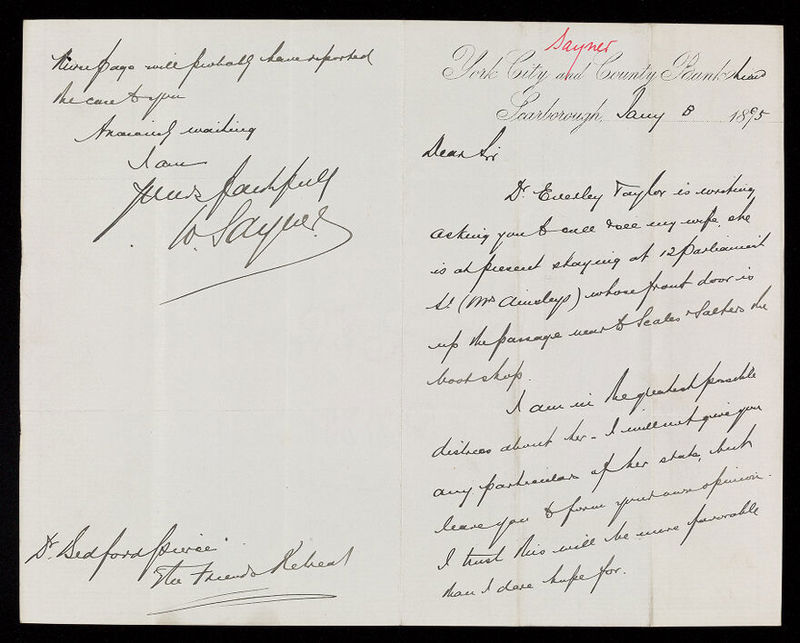 Sayner
York City and County Bank
Scarborough, Jany 8 1895
Dear Sir
Dr. Eversley Taylor is writing
asking you to call & see my wife, she
is at present staying at 12 Parliament
St (Mrs Ainsleys) whose front door is
up the passage near to Scales & Salters the
boot shop.
I am in the greatest possible
distress about her – I will not give you
any particulars of her state, but
leave you to form your own opinion.
I trust this will be more favorable
than I dare hope for.
Nurse Page will probably have reported
the case to you
Anxiously waiting
I am
Yours faithfully
W. Sayner.
Dr. Bedford Pierce
The Friends Retreat